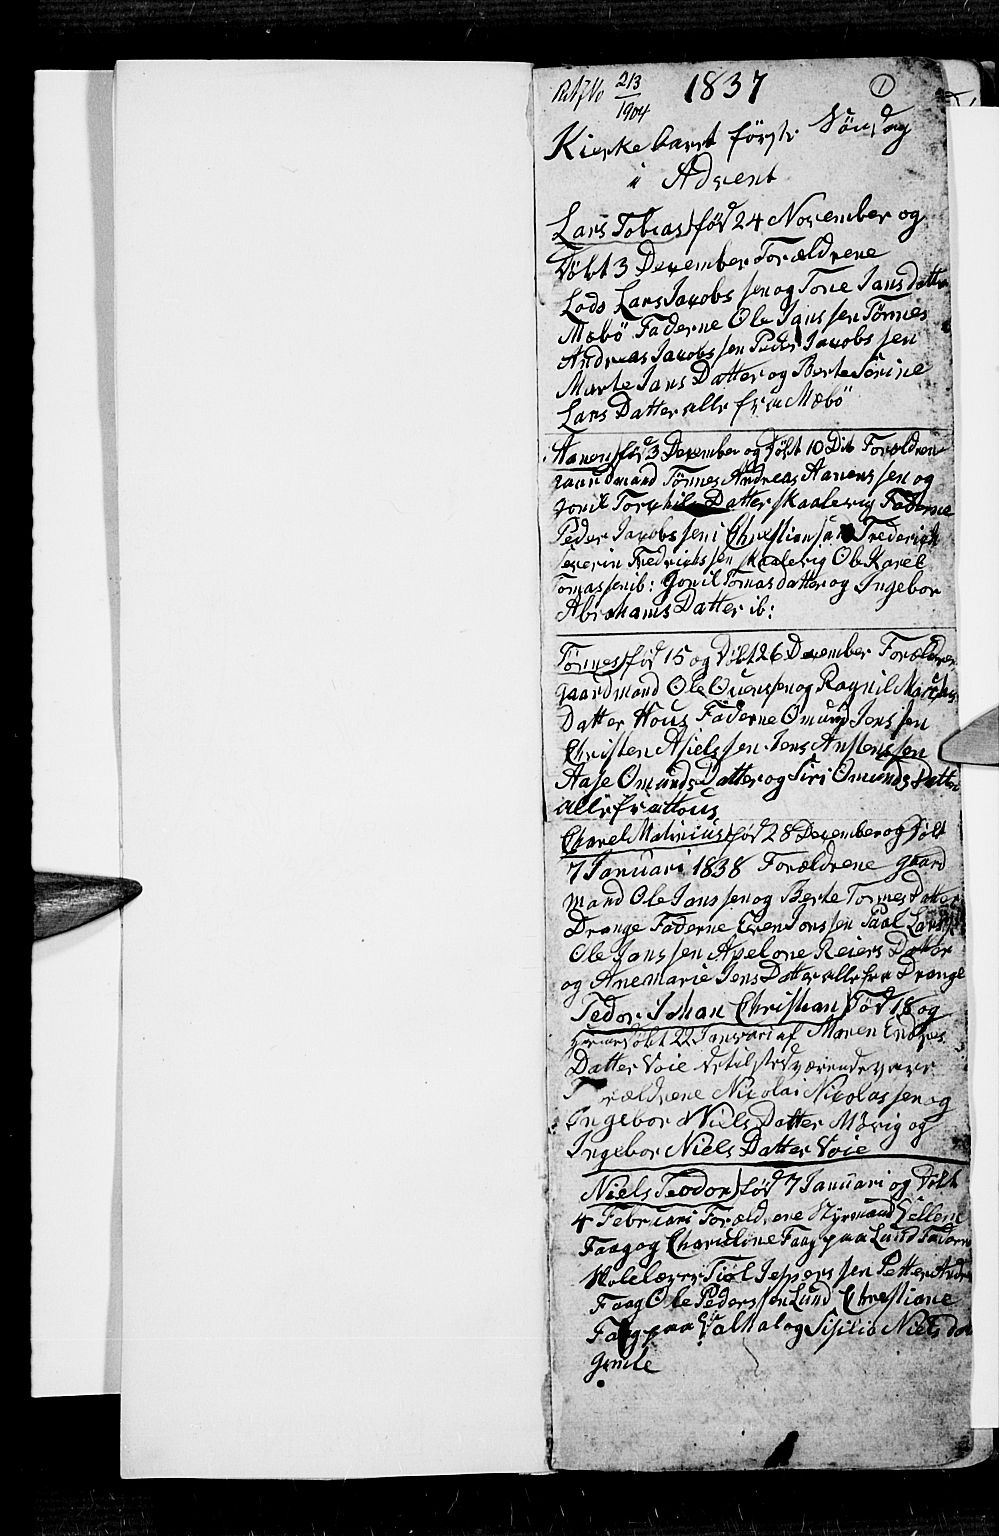 213
1904
1837
1
Kierkeaaret förste Söndag
i Advent
Lars Tobias) fød 24 November og
Døbt 3 December Forældrene
Lods Lars Jacobs sen og Tone Jansdatter
Mæbö Faderne Ole Jans sen Tønnes
Andreas Jacobs sen Peder Jacobs sen
Marte Jans Datter og Berte Sørine
Lars Datter alle fra Mæbö
Aanen) fød 3 December og Døbt 10 Dito Forældrene
gaardmand Tønnes Andreas Aanens sen og
Gonil Torkils Datter skaalevig Faderne
Peder Jacobs sen i Christiansand Frederich
Severin Fredrichs sen skaalevig Ole Karel
Tomas sen ib: Gonil Tomasdatter og Ingebor
Abrahams Datter ib:
Tønnes) fød 15 og Døbt 26 December Forældrene
gaardmand Ole Ouens sen og Ragnil
Datter Hous Faderne Omund Jens sen
Christen Asiels sen Jens Anstens sen
Aase Omunds Datter og Siri Omunds Datter
alle fra Hous
Charel Malinius) fød 28 December og Døbt
7 Januari 1838 Forældrene gaard
mand Ole Jans sen og Berte Tormes Datter
Drange Faderne Even Jons sen Paal Lars
Ole Jans sen Apelone Reiers Datter
og Anemarie Jens Datter alle fra Drange
Tedor Johan Christian) Fød 18 og
Døbt 22 Januari af Maren Endres
Datter Voie de tilstedværende vare
Forældrene Nicolai Nicolas sen og
Ingebor Niels Datter Møvig og
Ingebor Niels Datter Voie
Niels Teodor) fød 7 Januari og Døbt
4 Februari Forældrene Styrmand
Faag og Charuline Faag paa Lund Faderne
Skolelærer Tiøl Jeppers sen Petter Andr
Faag Ole Peders sen Lund Christiane
Faag paa og Sisilia Niels dat
Gimle